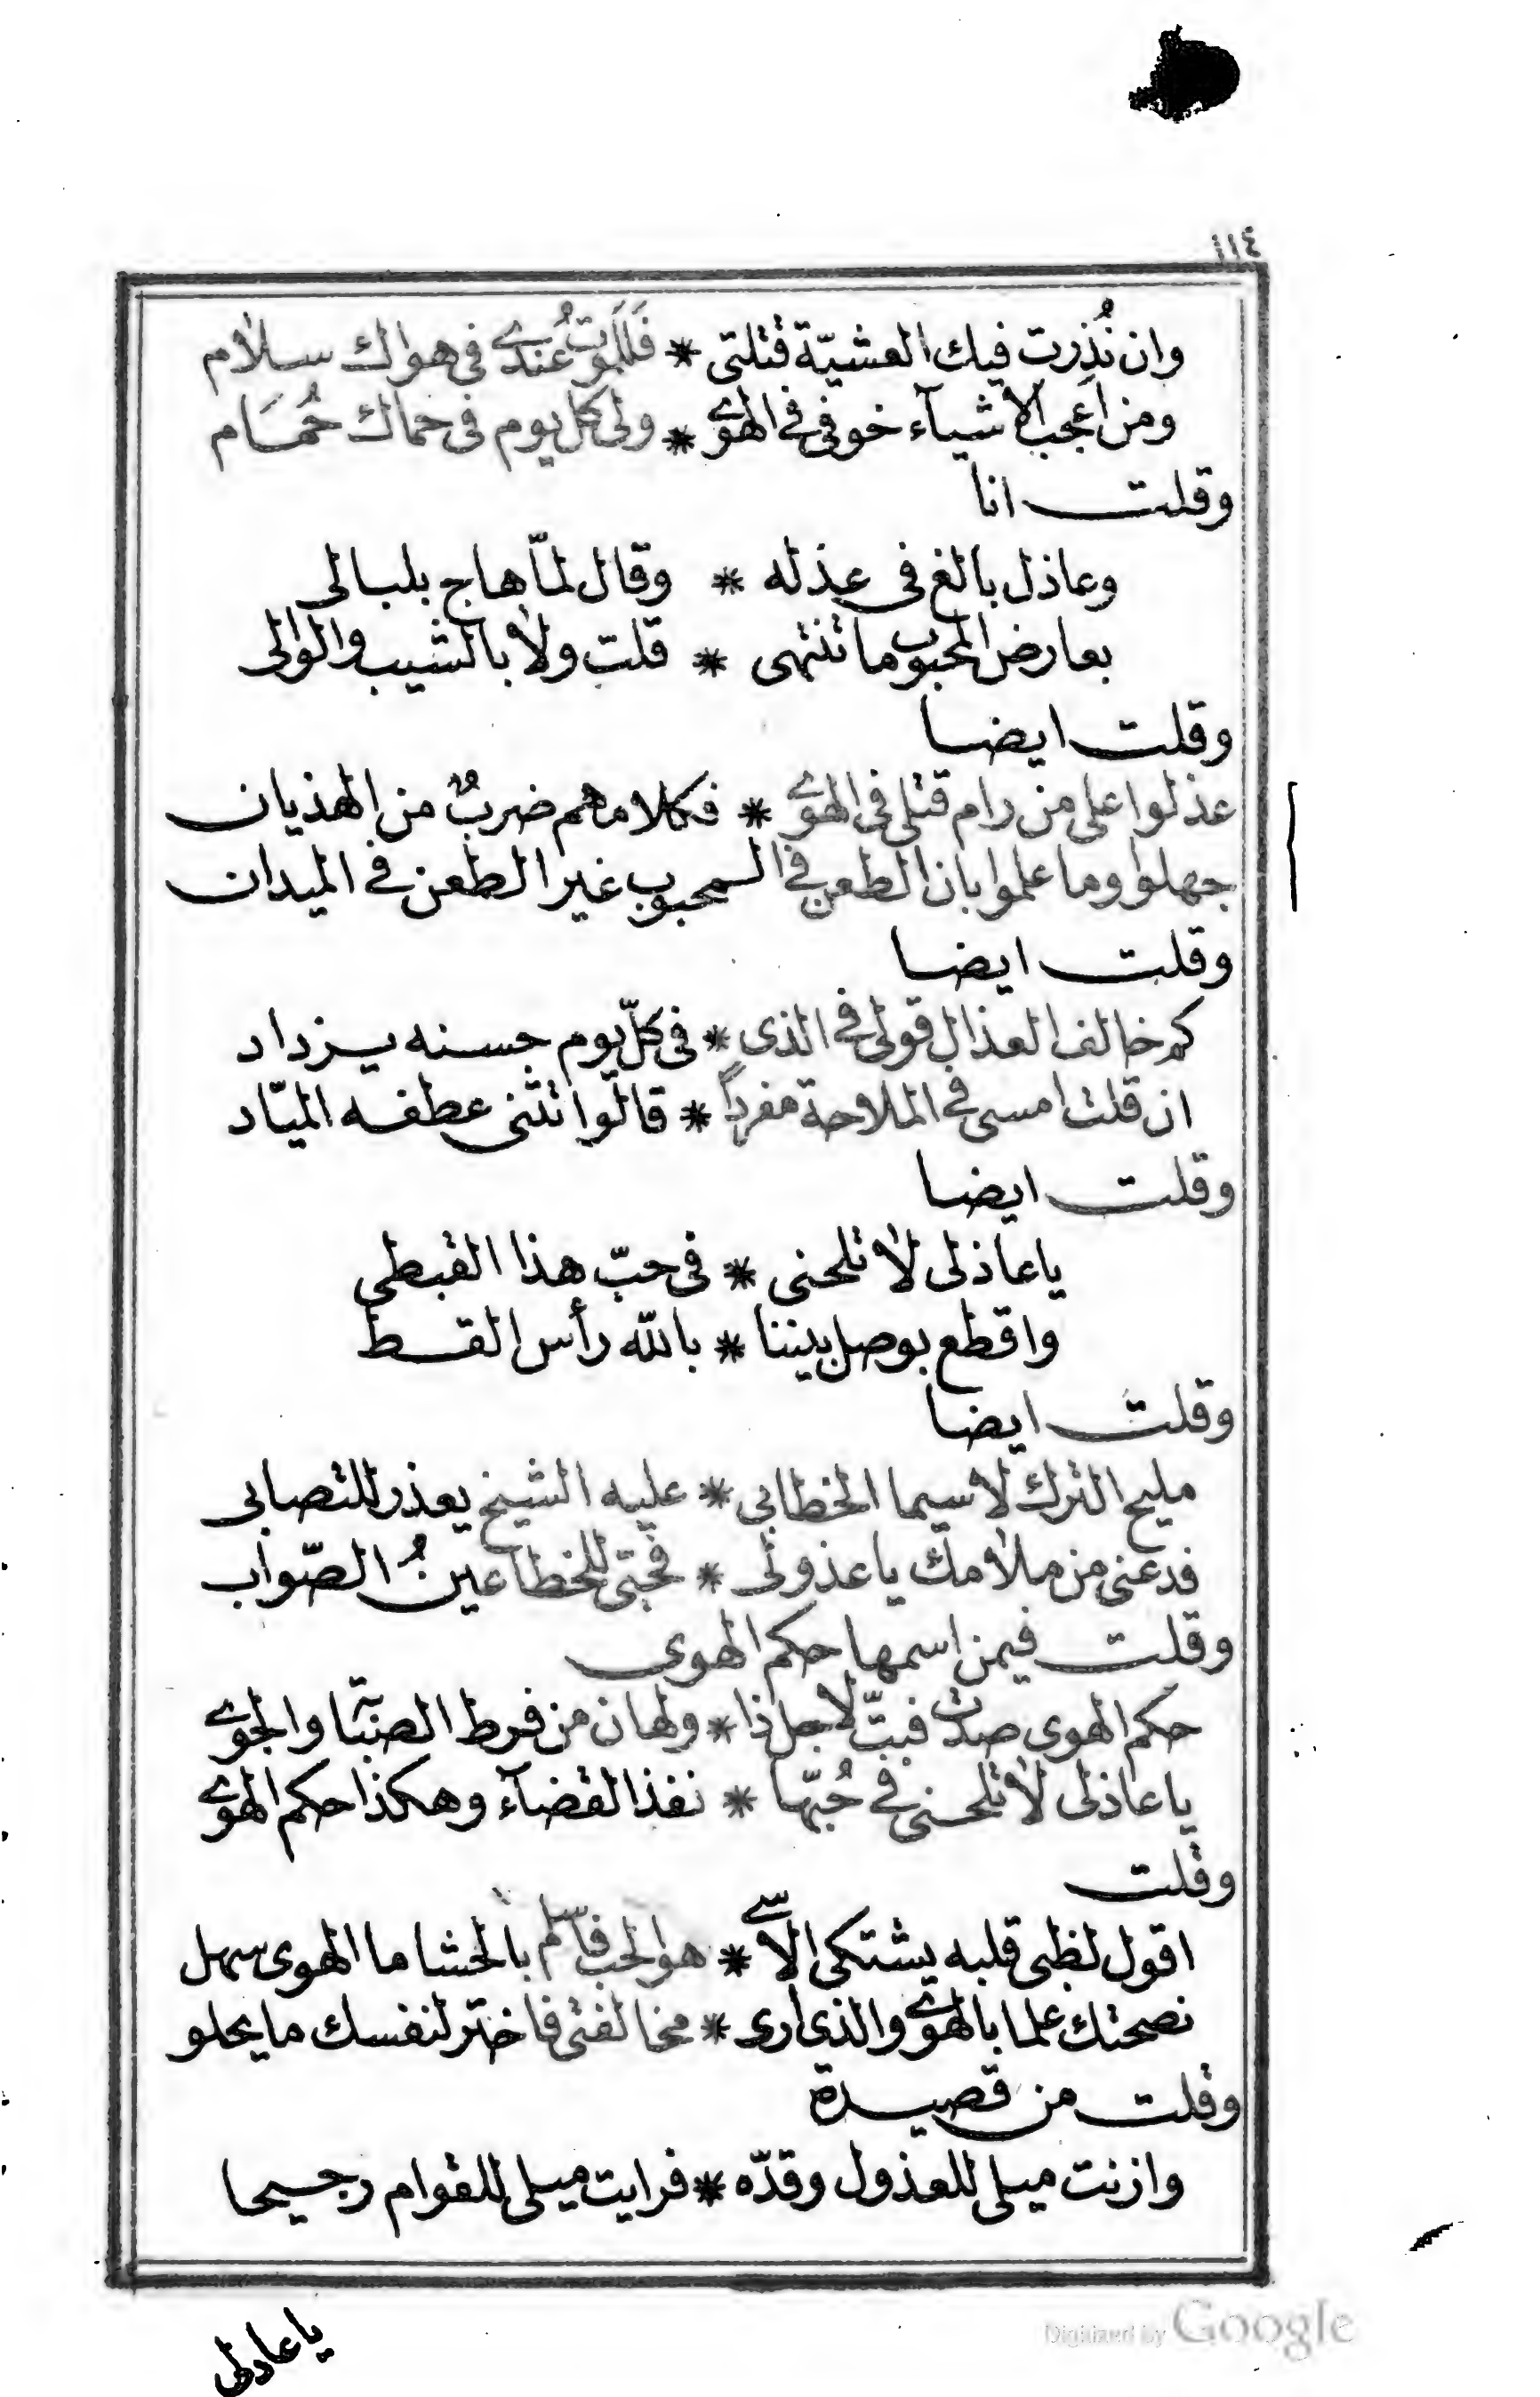 ١١٤
وان نُذِرت فيك العشيّة قتلتى * فَلَلموت عُندے فى هواك سلام
ومن اَعجب الاَشيآء خوفى فى الهوٰے * ولى كل يوم فى حماك حُمَام
وقلت انا
وعاذل بالغ فى عذله * وقال لمّا هاج بلبالى
بعارض المحبوب ما تنتهى * قلت ولا بالشيب والوالى
وقلت ايضا
عذلوا على من رام قتلى فى الهوٰے * فكلامهم ضربٌ من الهذيان
جهلوا وما علموا بان الطعن فى المحبوب غير الطعن فى الميدان
وقلت ايضا
كم خالف العذال قولى فى الذى * فى كلّ يوم حسنه يزداد
ان قلت امسى فى الملاحة مفرداً * قالوا تثنى عطفه الميّاد
وقلت ايضا
يا عاذلى لا تلحنى * فى حبّ هذا القبطى
واقطع بوصل بيننا * بالله رأس القط
وقلت ايضا
مليح الترك لا سيما الخطابى * عليه الشيخ يعذر للتصابى
فدعنى من ملامك يا عذولى * فحبّى للخطا عينُ الصّواب
وقلت فيمن اسمها حكم الهوى
حكم الهوى صدت فبتّ لاجل ذا * ولهان من فرط الصبآ والجوے
يا عاذلى لا تلحنى فى حُبّها * نفذ القضآء وهكذا حكم الهوے
وقلت
اقول لظبى قلبه يشتكى الاسے * هو الحب فاسلم بالحشا ما الهوى سهل
نصحتك علما بالهوے والذى ارى * مخالفتى فاختر لنفسك ما يحلو
وقلت من قصيدة
وازنت ميلى للعذول وقدّه * فرايت ميلى للقوام رجيحا
يا عاذلى
Digitized by Google